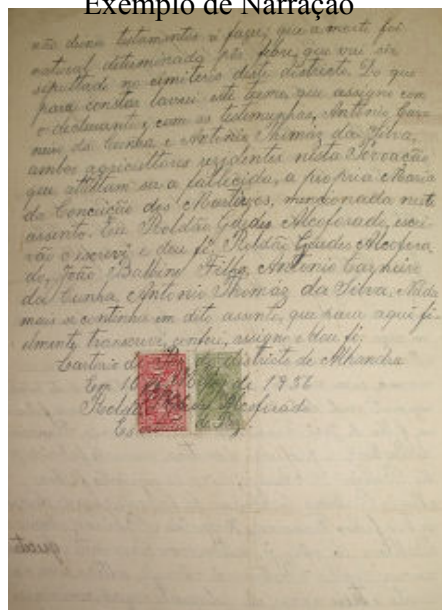 Exemplo de Narração
não deixa testamentos a fazer, que a morte foi
natural determinada por febre, que vai ser
sepultada no cimiterio deste districto. Do que
para constar lavrei este termo que assigno com
o declarante e com as testemunhas, Antônio
da Cunha e Antonio Thomaz da Silva,
ambos agricultores rezidentes nesta Povoação
que attestam ser a fallecida, a propria Maria
da Conceição dos Martyres, mencionada neste
assento. Eu Roldão Guedes Alcoforado, escri-
vão o escrevi e dou fé. Roldão Guedes Alcofora-
do, João Balbino Filho, Antonio
da Cunha, Antonio Thomaz da Silva. Nada
mais se continha em dito assento, que para aqui fi-
elmente transcrevi, conferi, assigno e dou fé.
Cartorio districto de Alhandra
Em 10 de de 1936
Roldão Guedes Alcoforado
de Paz